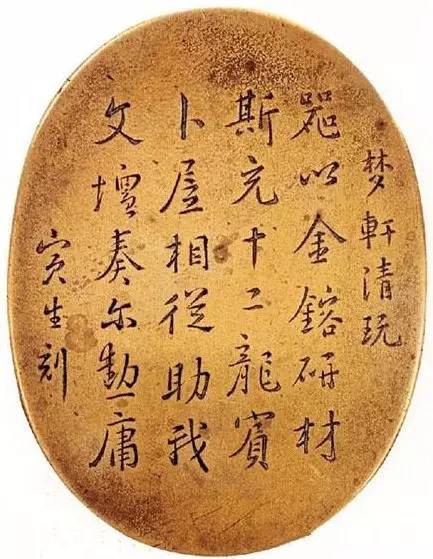 梦軒清玩
器以金鎔研材
斯充十二龍賓
卜屋相從助我
文壇奏尔勳庸
寅生刻